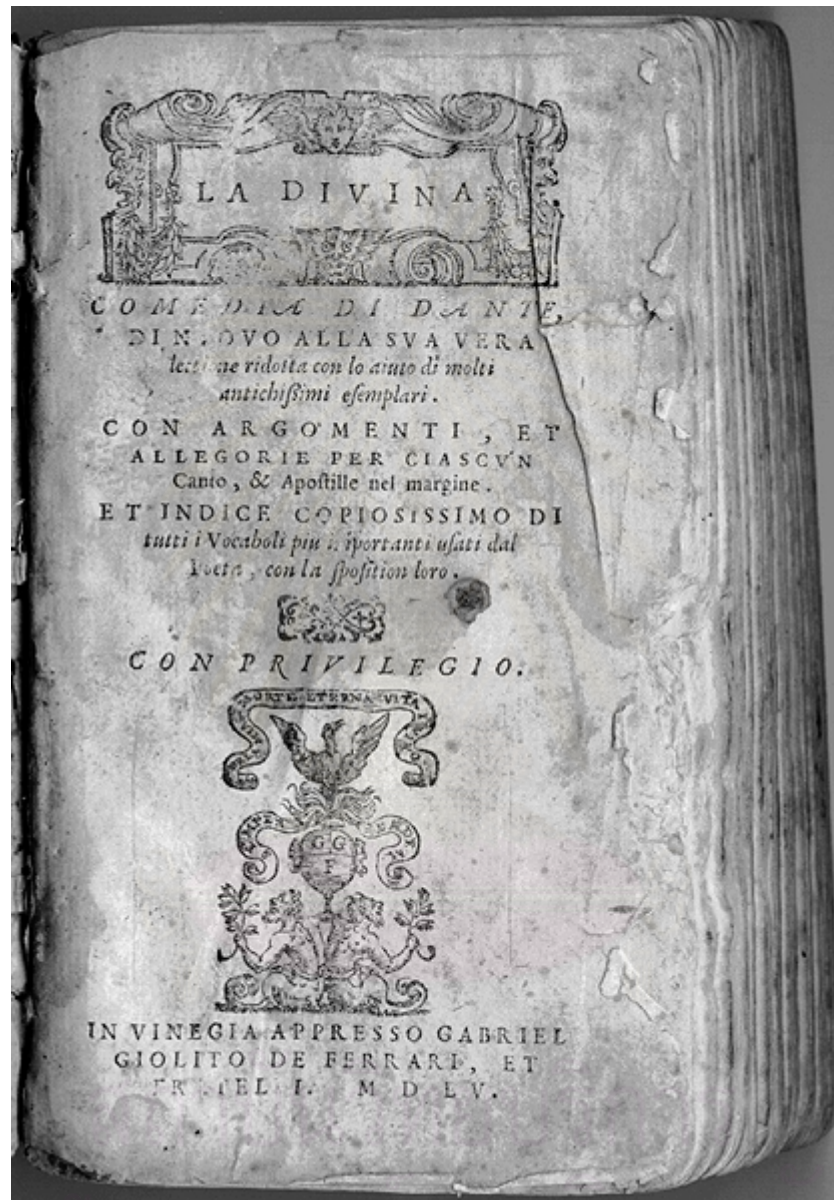 LA DIVINA
COMEDIA DI DANTE,
DI NUOVO ALLA SVA VERA
lettione ridotta con lo aiuto di molti
antichiſſimi eſemplari.
CON ARGOMENTI, ET
ALLEGORIE PER CIASCVN
Canto, & Apoſtille nel margine.
ET INDICE COPIOSISSIMO DI
tutti i Vocaboli piu importanti uſati dal
Poeta, con la ſpoſition loro.
CON PRIVILEGIO.
MORTE ETERNA VITA
GG
F
IN VINEGIA APPRESSO GABRIEL
GIOLITO DE FERRARI, ET
FRATELLI. M D LV.